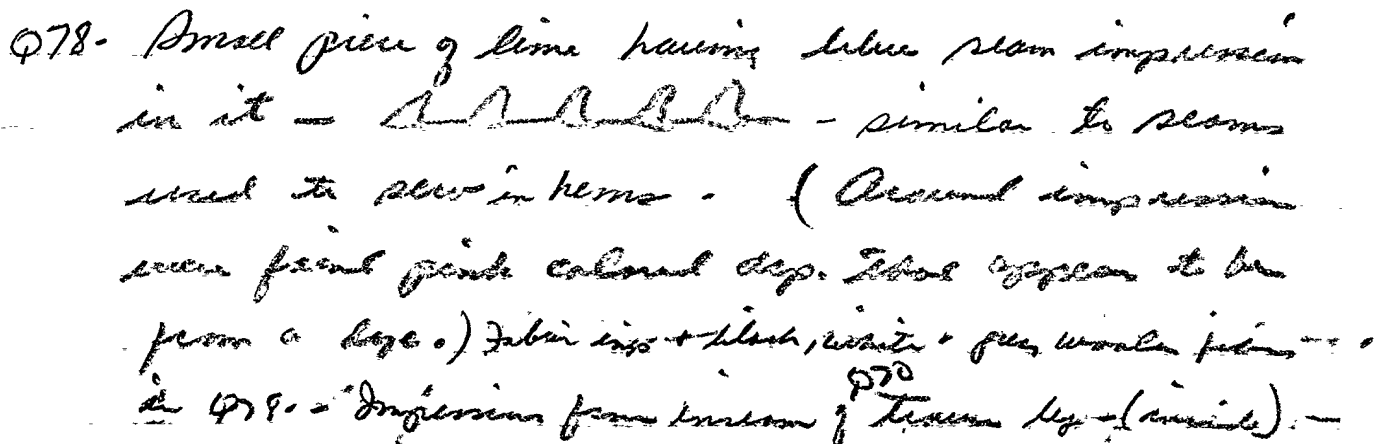 Q78. Small piece of lime having seam impression
in it — - similar to seams
used to sew in hems. (Around impression
were pink colored dep. that appear to be
from a dye.) Fabric imp + black, white + woolen fibers
in Q78. Impression from inseam of Q70 leg - (inside) -